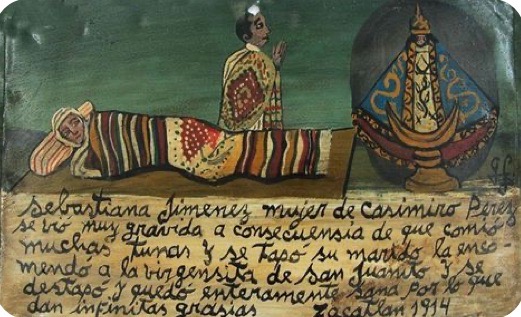 Sebastiana Jimenez mujer de Casimiro Perez
se vio muy gravida a consecuensia de que comio
muchas tunas y se tapo su marido la enco-
mendó a la virgensita de san Juanito y se
destapó y quedó enteramente sana por lo que
dan infinitas grasias Zacatlan 1914